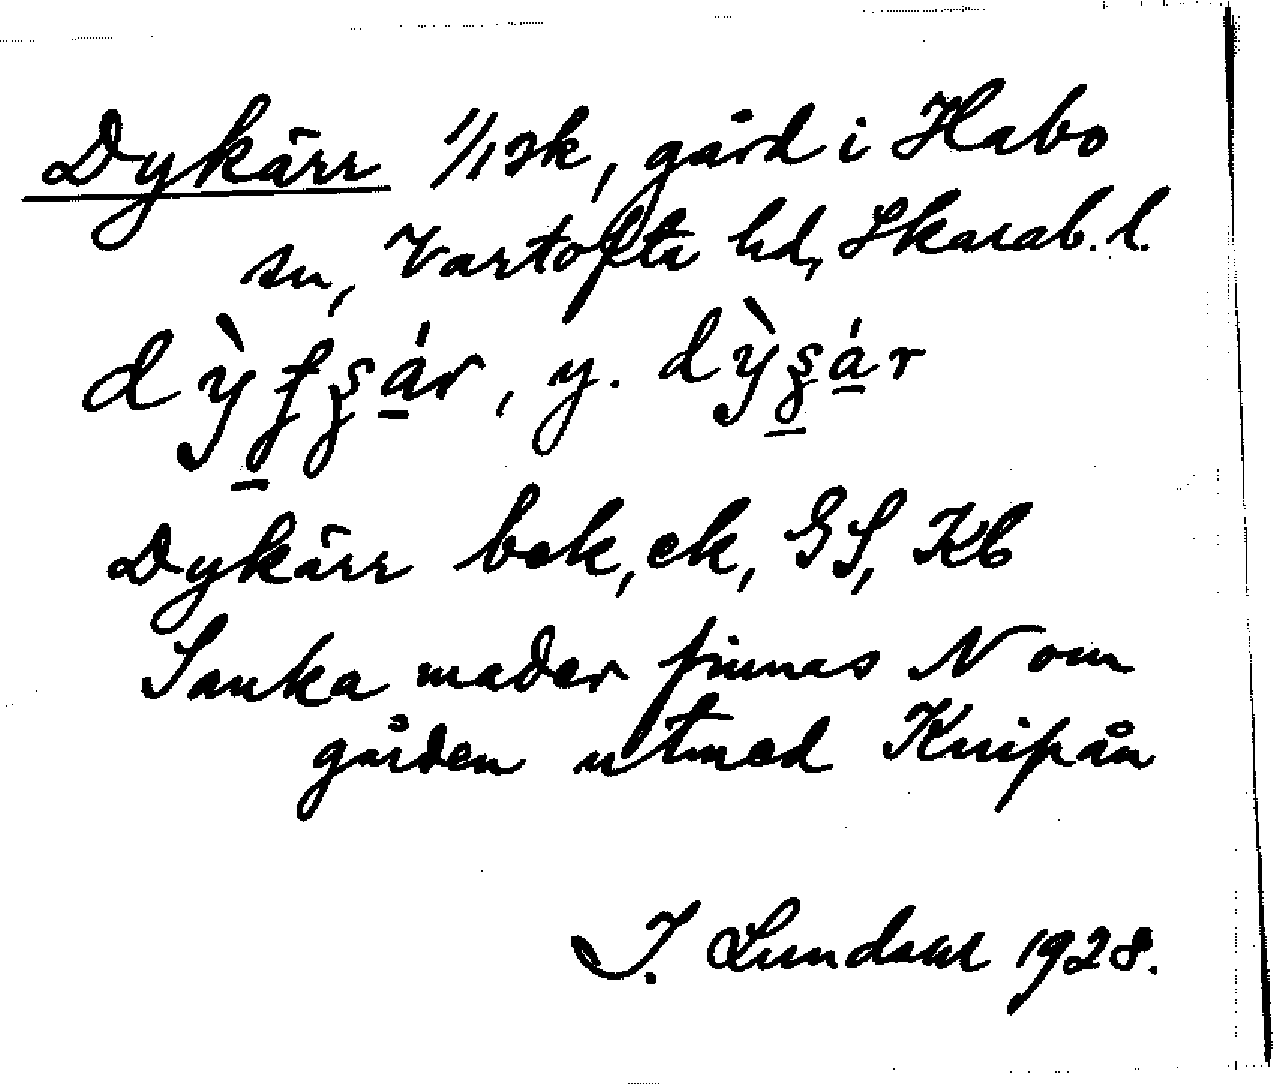 Dykärr 1/1 sk, gård i Habo
sn, Vartofta hd, Skarab. l.
, y.
Dykärr bek, ek, GS, Kb
Sanka mader finnas N om
gården utmed Knipån
I. Lundahl 1928.